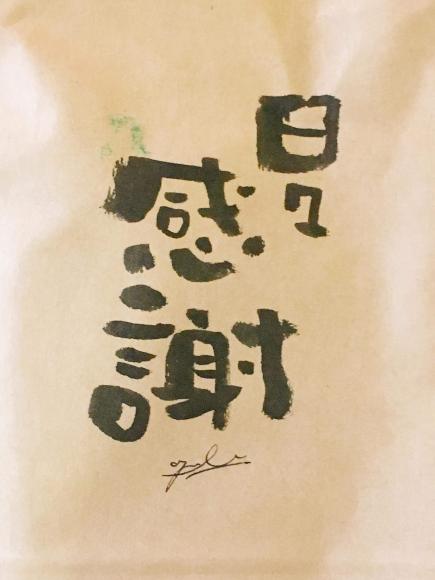 日々
感謝